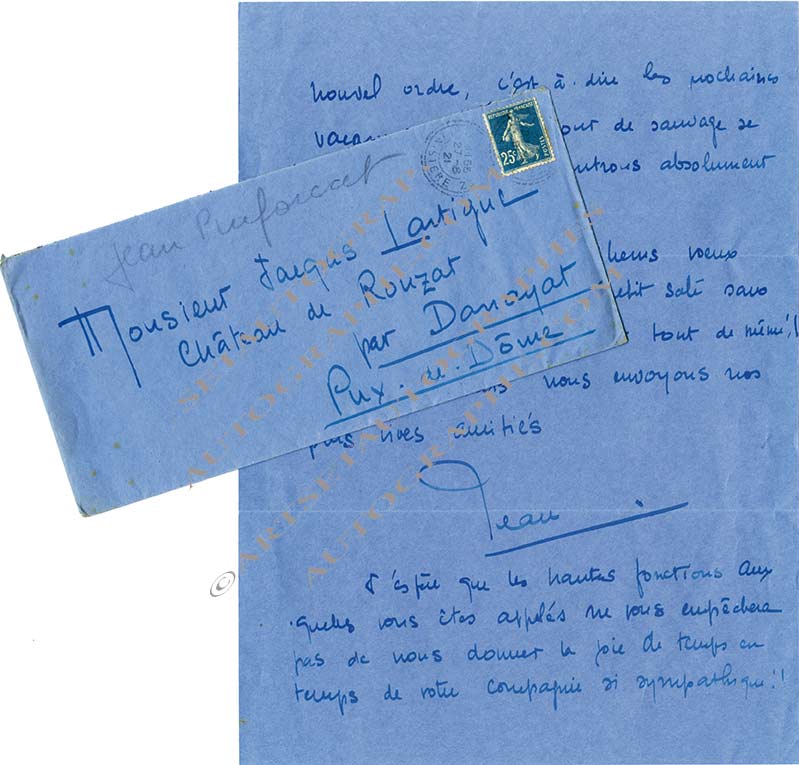 nouvel ordre, c'est à dire les prochaines
de sauvage se
absolument
voeux
petit salé sans
tout de même!!
nous envoyons nos
plus vives amitiés
Jean
J'espère que les hautes fonctions aux
quelles vous êtes applés ne vous empêchera
pas de nous donner la joie de temps en
temps de votre compagnie si sympathique!!
Jean Puiforcat
Monsieur Jacques Lartigue
Château de Rouzat
par Danayat
Puy-de-Dôme
REPUBLIQUE FRANÇAISE
25c
POSTES
©